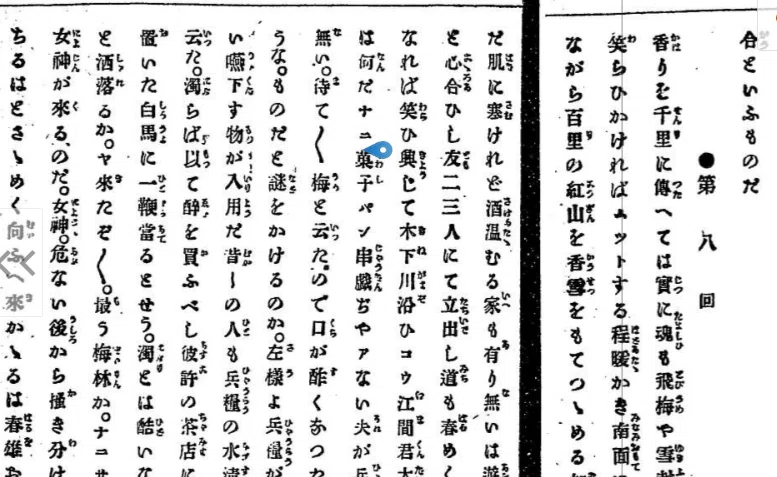 合といふものだ
●第八回
香りを千里に傳へては實に魂も飛梅や雪
笑ちひかければエットする程暖かき南面
ながら百里の紅山を香雪をもてつゝめる
だ肌に寒けれど酒温むる家も有り無いは遊
と心合ひし友二三人にて立出し道も春めく
なれば笑ひ興じて木下川沿ひコウ江間君大
は何だナニ菓子パン串戯ぢやアない夫が兵
無い。待て〱梅と云た。ので口が酢くあつた
うな。ものだと謎をかけるのか。左樣よ兵糧が
い嚥下す物が入用だ昔しの人も兵糧の水
云た。濁らば以て醉を買ふべし彼許の茶店に
置いた白馬に一鞭當るとせう。濁とは酷いな
と洒落るか。ヤ來たぞ〱。最う梅林か。ナニサ
女神が來る、のだ。女神。危ない後から掻き分け
ちるはとさゝめく向ふへ來かゝるは春雄お